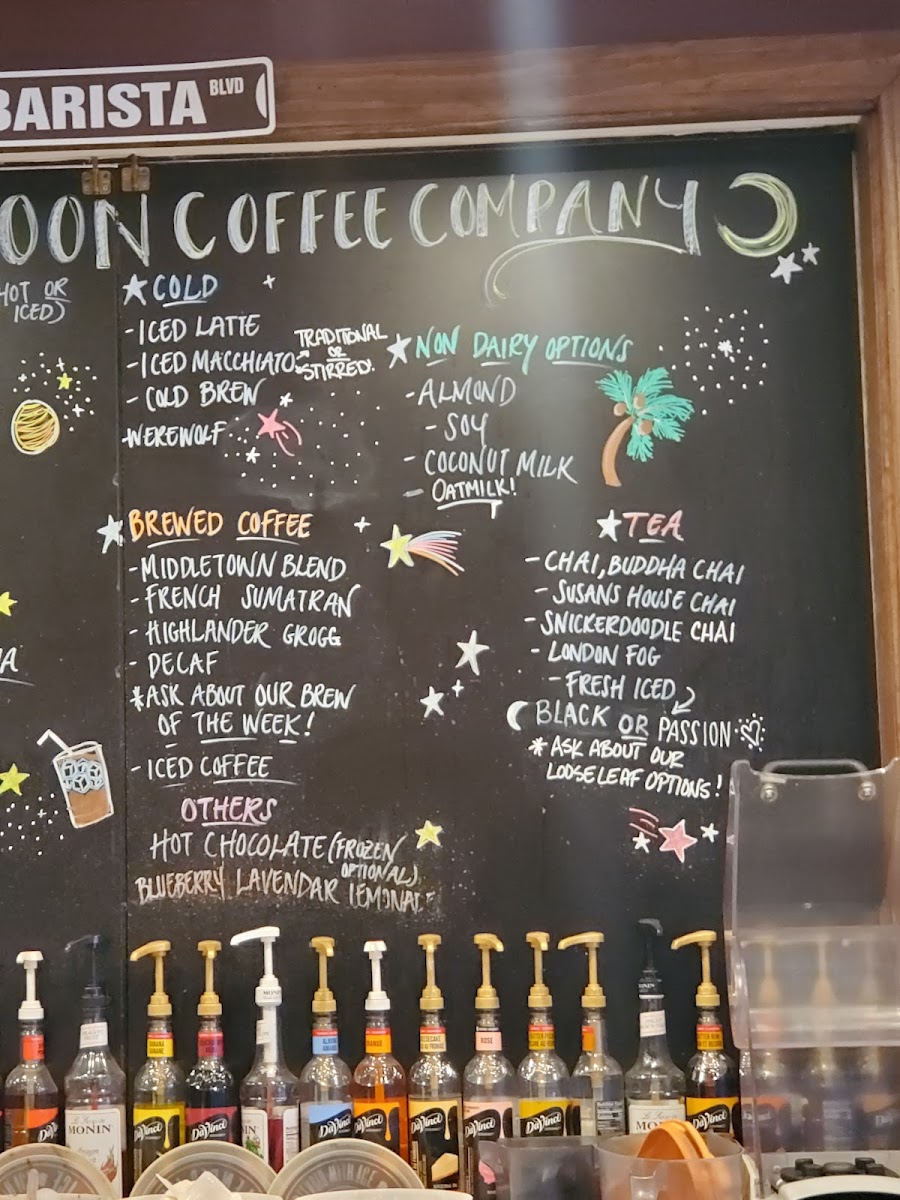 BARISTA BLVD
OON COFFEE COMPANY
HOT OR
ICED)
COLD
- ICED LATTE
- ICED MACCHIATO: TRADITIONAL
OR
STIRRED!
- COLD BREW
-WEREWOLF
NON DAIRY OPTIONS
- ALMOND
- SOY
- COCONUT MILK
- OATMILK!
BREWED COFFEE
- MIDDLETOWN BLEND
- FRENCH SUMATRAN
- HIGHLANDER GROGG
- DECAF
*ASK ABOUT OUR BREW
OF THE WEEK!
- ICED COFFEE
OTHERS
HOT CHOCOLATE (FROZEN
OPTIONAL)
BLUEBERRY LAVENDAR LEMONADE
TEA
- CHAI, BUDDHA CHAI
- SUSANS HOUSE CHAI
- SNICKERDOODLE CHAI
- LONDON FOG
- FRESH ICED
BLACK OR PASSION
* ASK ABOUT OUR
LOOSELEAF OPTIONS!
MONIN
MONIN
BANANA
ROSE
MONIN
DaVinci
DaVinci
DaVinci
DaVinci
DaVinci
DaVinci
DaVinci
DaVinci
DaVinci
MONIN